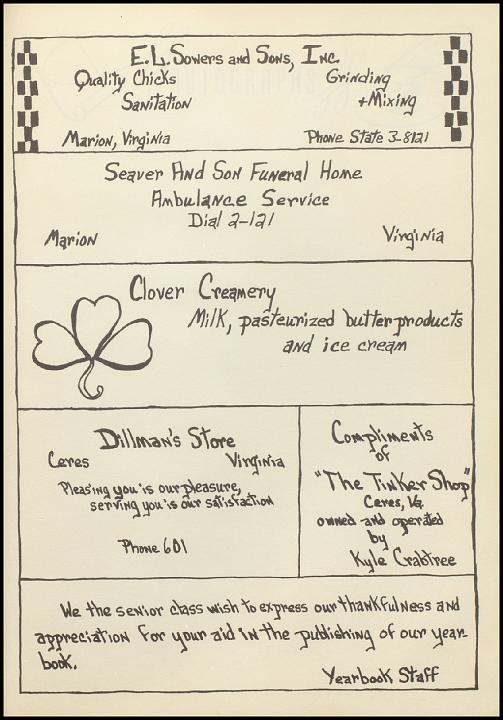 E.L. Sowers and Sons, Inc.
Quality Chicks Grinding
Sanitation + Mixing
Marion, Virginia Phone State 3-8121
Seaver And Son Funeral Home
Ambulance Service
Dial 2-121
Marion Virginia
Clover Creamery
Milk, pasteurized butter products
and ice cream
Dillman's Store
Ceres Virginia
Pleasing you is our pleasure,
serving you is our satisfaction
Phone 601
Compliments
of
"The Tinker Shop"
Ceres, Va.
owned and operated
by
Kyle Crabtree
We the senior class wish to express our thankfulness and
appreciation for your aid in the publishing of our year-
book.
Yearbook Staff